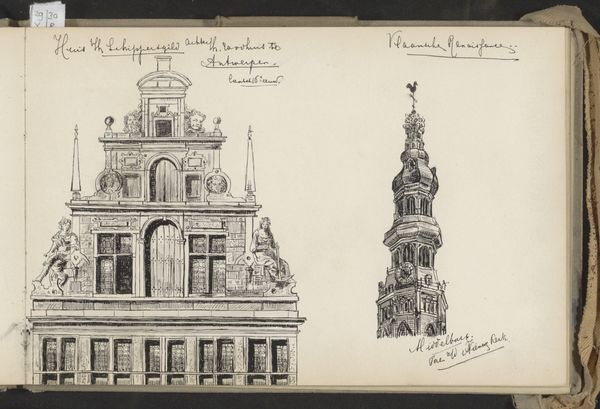 39 30
Huis v/h Schippersgild achter h. raadhuis te
Antwerpen.
Vlaamsche Renaissance.
Middelburg.
Toren v/d Nieuwe Kerk.